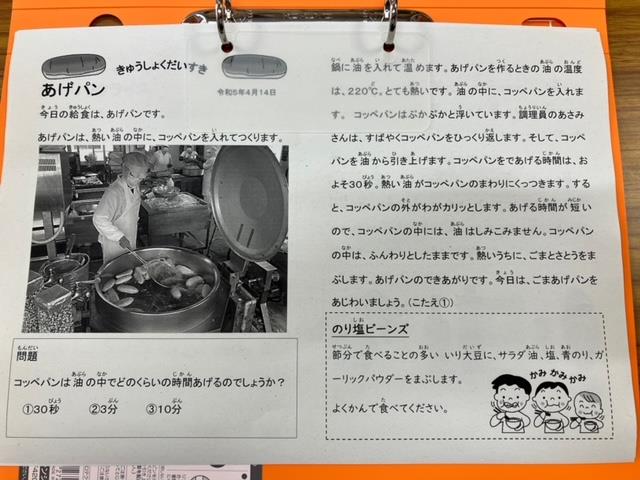 きゅうしょくだいすき
あげパン
令和5年4月14日
今日の給食は、あげパンです。
あげパンは、熱い油の中に、コッペパンを入れてつくります。
問題
コッペパンは油の中でどのくらいの時間あげるのでしょうか？
①30秒　②3分　③10分
鍋に油を入れて温めます。あげパンを作るときの油の温度
は、220℃。とても熱いです。油の中に、コッペパンを入れま
す。コッペパンはぷかぷかと浮いています。調理員のあさみ
さんは、すばやくコッペパンをひっくり返します。そして、コッペ
パンを油から引き上げます。コッペパンをであげる時間は、お
よそ30秒。熱い油がコッペパンのまわりにくっつきます。する
と、コッペパンの外がわがカリッとします。あげる時間が短い
ので、コッペパンの中には、油はしみこみません。コッペパン
の中は、ふんわりとしたままです。熱いうちに、ごまとさとうをま
ぶします。あげパンのできあがりです。今日は、ごまあげパンを
あじわいましょう。（こたえ①）
のり塩ビーンズ
節分で食べることの多い いり大豆に、サラダ油、塩、青のり、ガ
ーリックパウダーをまぶします。
よくかんで食べてください。
かみ かみ かみ